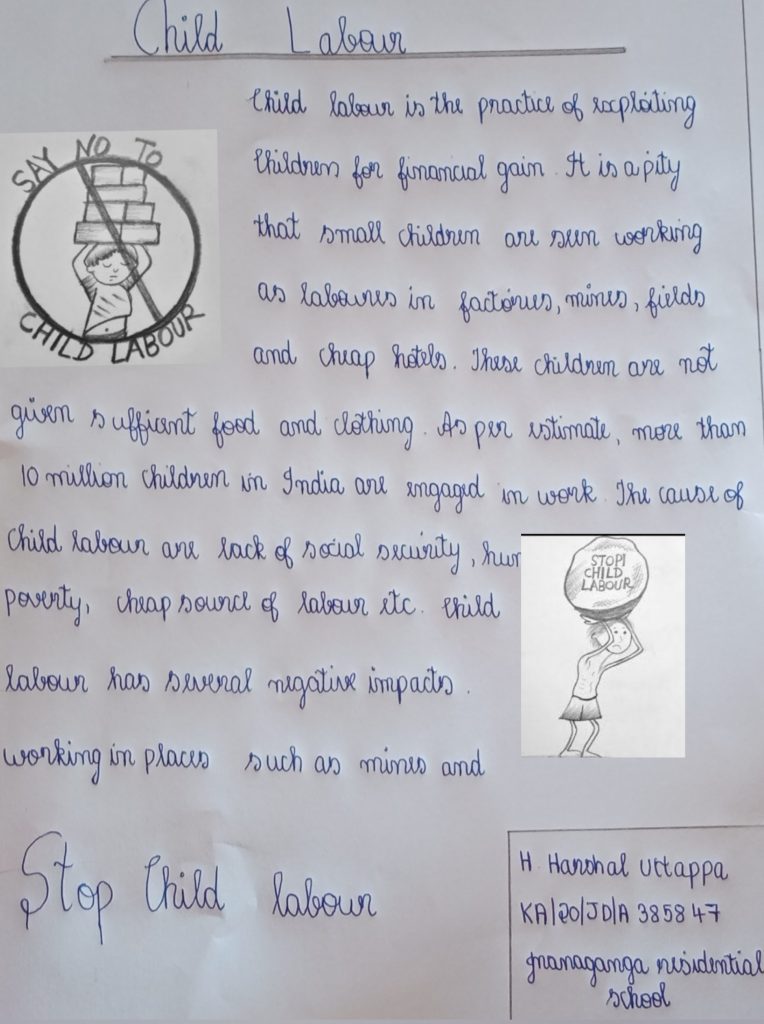 Child Labour
SAY NO TO
CHILD LABOUR
Child labour is the practice of exploiting
Children for financial gain. It is a pity
that small children are seen working
as laboures in factories, mines, fields
and cheap hotels. These children are not
given sufficent food and clothing. As per estimate, more than
10 million children in India are engaged in work. The cause of
Child labour are lack of social security,
poverty, cheap source of labour etc. Child
labour has several negative impacts.
working in places such as mines and
STOP!
CHILD
LABOUR
Stop Child labour
H. Harshal Uttappa
KA/20/JD/A 385847
gnanaganga residential
school